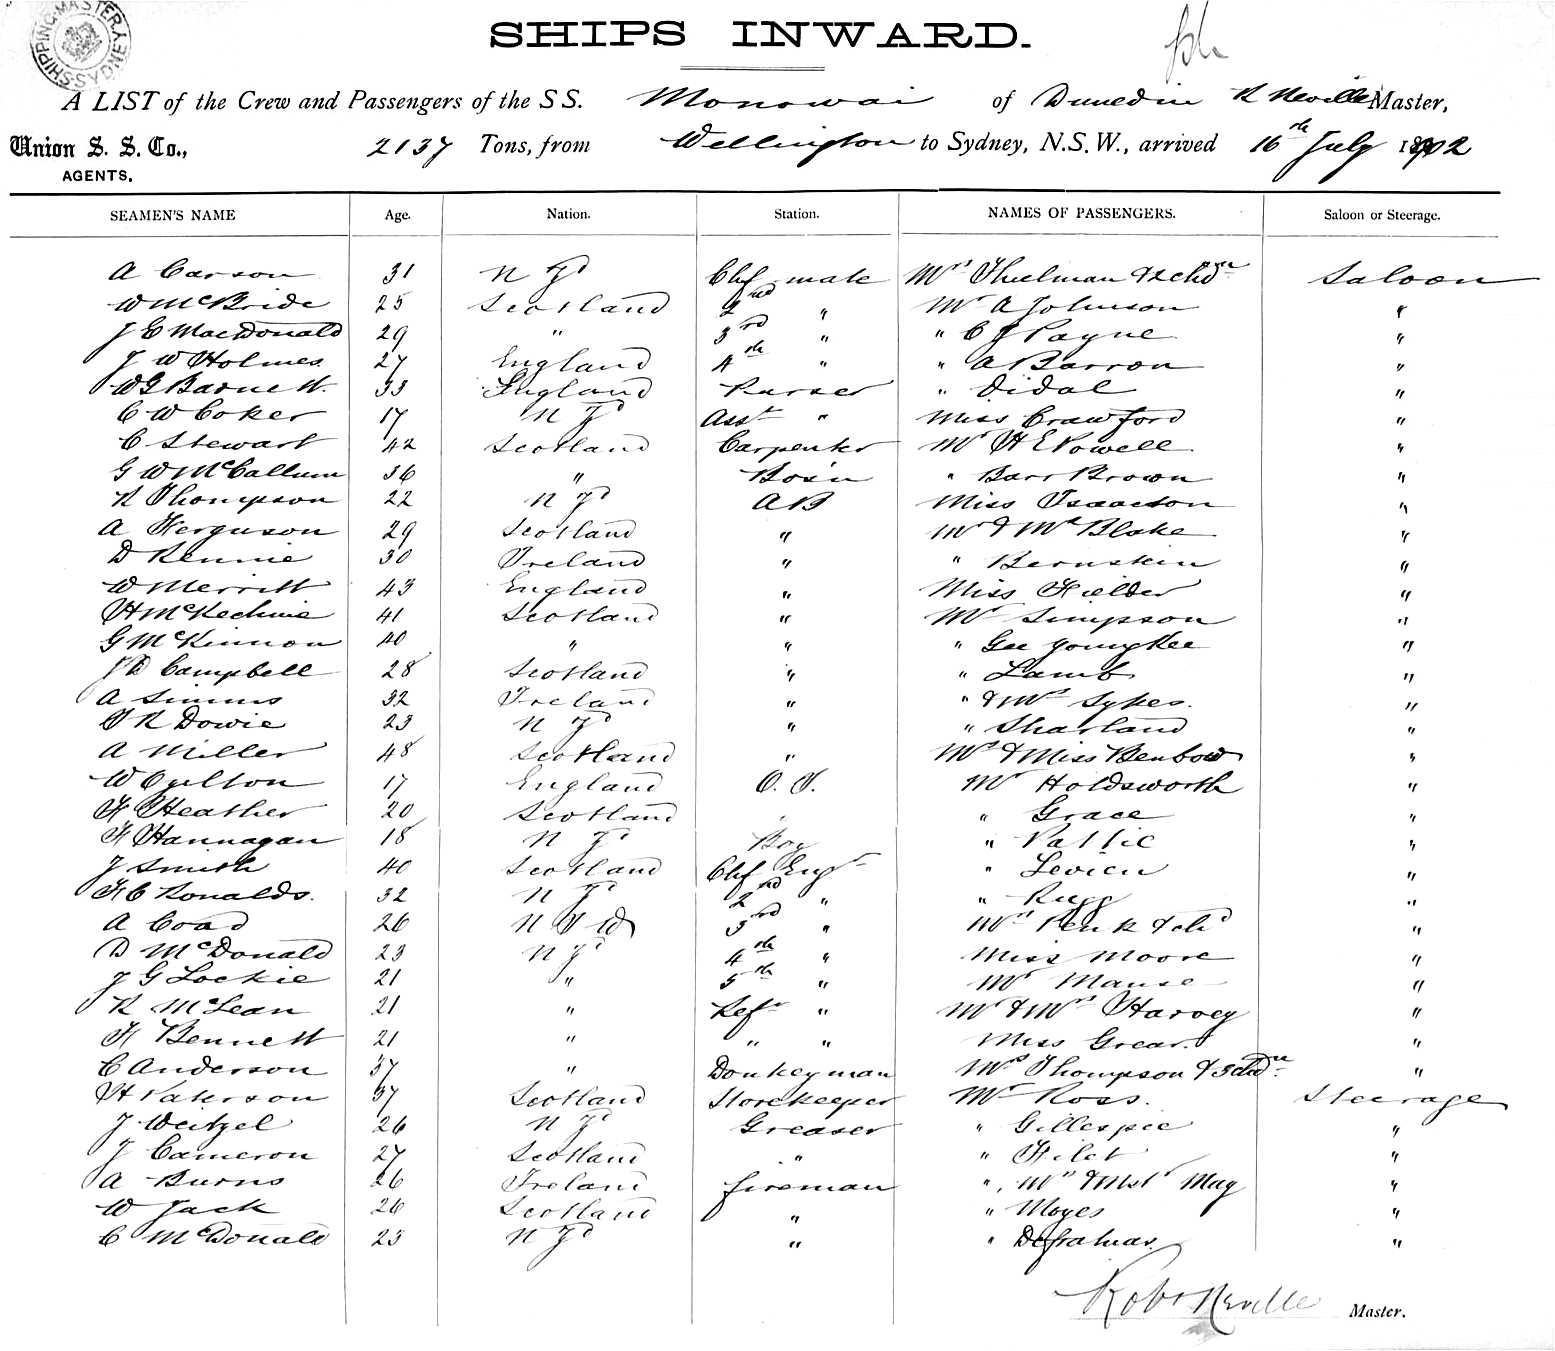 SHIPPING MASTER SYDNEY
SHIPS INWARD.
A LIST of the Crew and Passengers of the S S. Monowai of Dunedin R Neville Master,
Union S. S. Co., 2137 Tons, from Wellington to Sydney, N.S.W., arrived 16th July 1902
AGENTS.
SEAMEN'S NAME Age. Nation. Station. NAMES OF PASSENGERS. Saloon or Steerage.
A Carson 31 N Zd Chf mate Mrs Thelman & 2 chdn Saloon
W McBride 25 Scotland 2nd " Mr A Johnson "
J C MacDonald 29 " 3rd " " C J Payne "
J W Holmes 27 England 4th " " A Barron "
W G Barnett 33 England Purser " Didal "
C W Coker 17 N Zd Asst " Miss Crawford "
C Stewart 42 Scotland Carpenter Mr H E Powell "
G W McCallum 36 " Bosn " Barr Brown "
R Thompson 22 N Zd AB Miss Isaacson "
A Ferguson 29 Scotland " Mr & Mrs Blake "
D Rennie 30 Ireland " " Bernskin "
W Merritt 43 England " Miss Fielder "
H McKechnie 41 Scotland " Mr Simpson "
G McKinnon 40 " " " Gee Young Kee "
J D Campbell 28 Scotland " " Lamb "
A Simms 32 Ireland " " & Mrs Sykes. "
T R Dowie 23 N Zd " " Sharland "
A Miller 48 Scotland " Mrs & Miss Benbow "
W 17 England O. S. Mr Holdsworth "
F Heather 20 Scotland " Grace "
F Hannagan 18 N Zd Boy " "
J Smith 40 Scotland Chf Engr " Levien "
F C Ronalds. 32 N Zd 2nd " " Rugg "
A Coad 26 N S W 3rd " Mrs Penk & chd "
D McDonald 23 N Zd 4th " Miss Moore "
J G Lockie 21 " 5th " Mr Manse "
R McLean 21 " Refr " Mr & Mrs Harvey "
F Bennett 21 " " " Miss Grear. "
C Anderson 37 " Donkeyman Mrs Thompson & 3 chdn "
H Paterson 37 Scotland Storekeeper Mr Ross. Steerage
J Weitzel 26 N Zd Greaser " Gillespie "
J Cameron 27 Scotland " " "
A Burns 26 Ireland fireman " Mrs & Mstr May "
W Jack 26 Scotland " " Moyes "
C McDonald 23 N Zd " " "
Robt Neville Master.